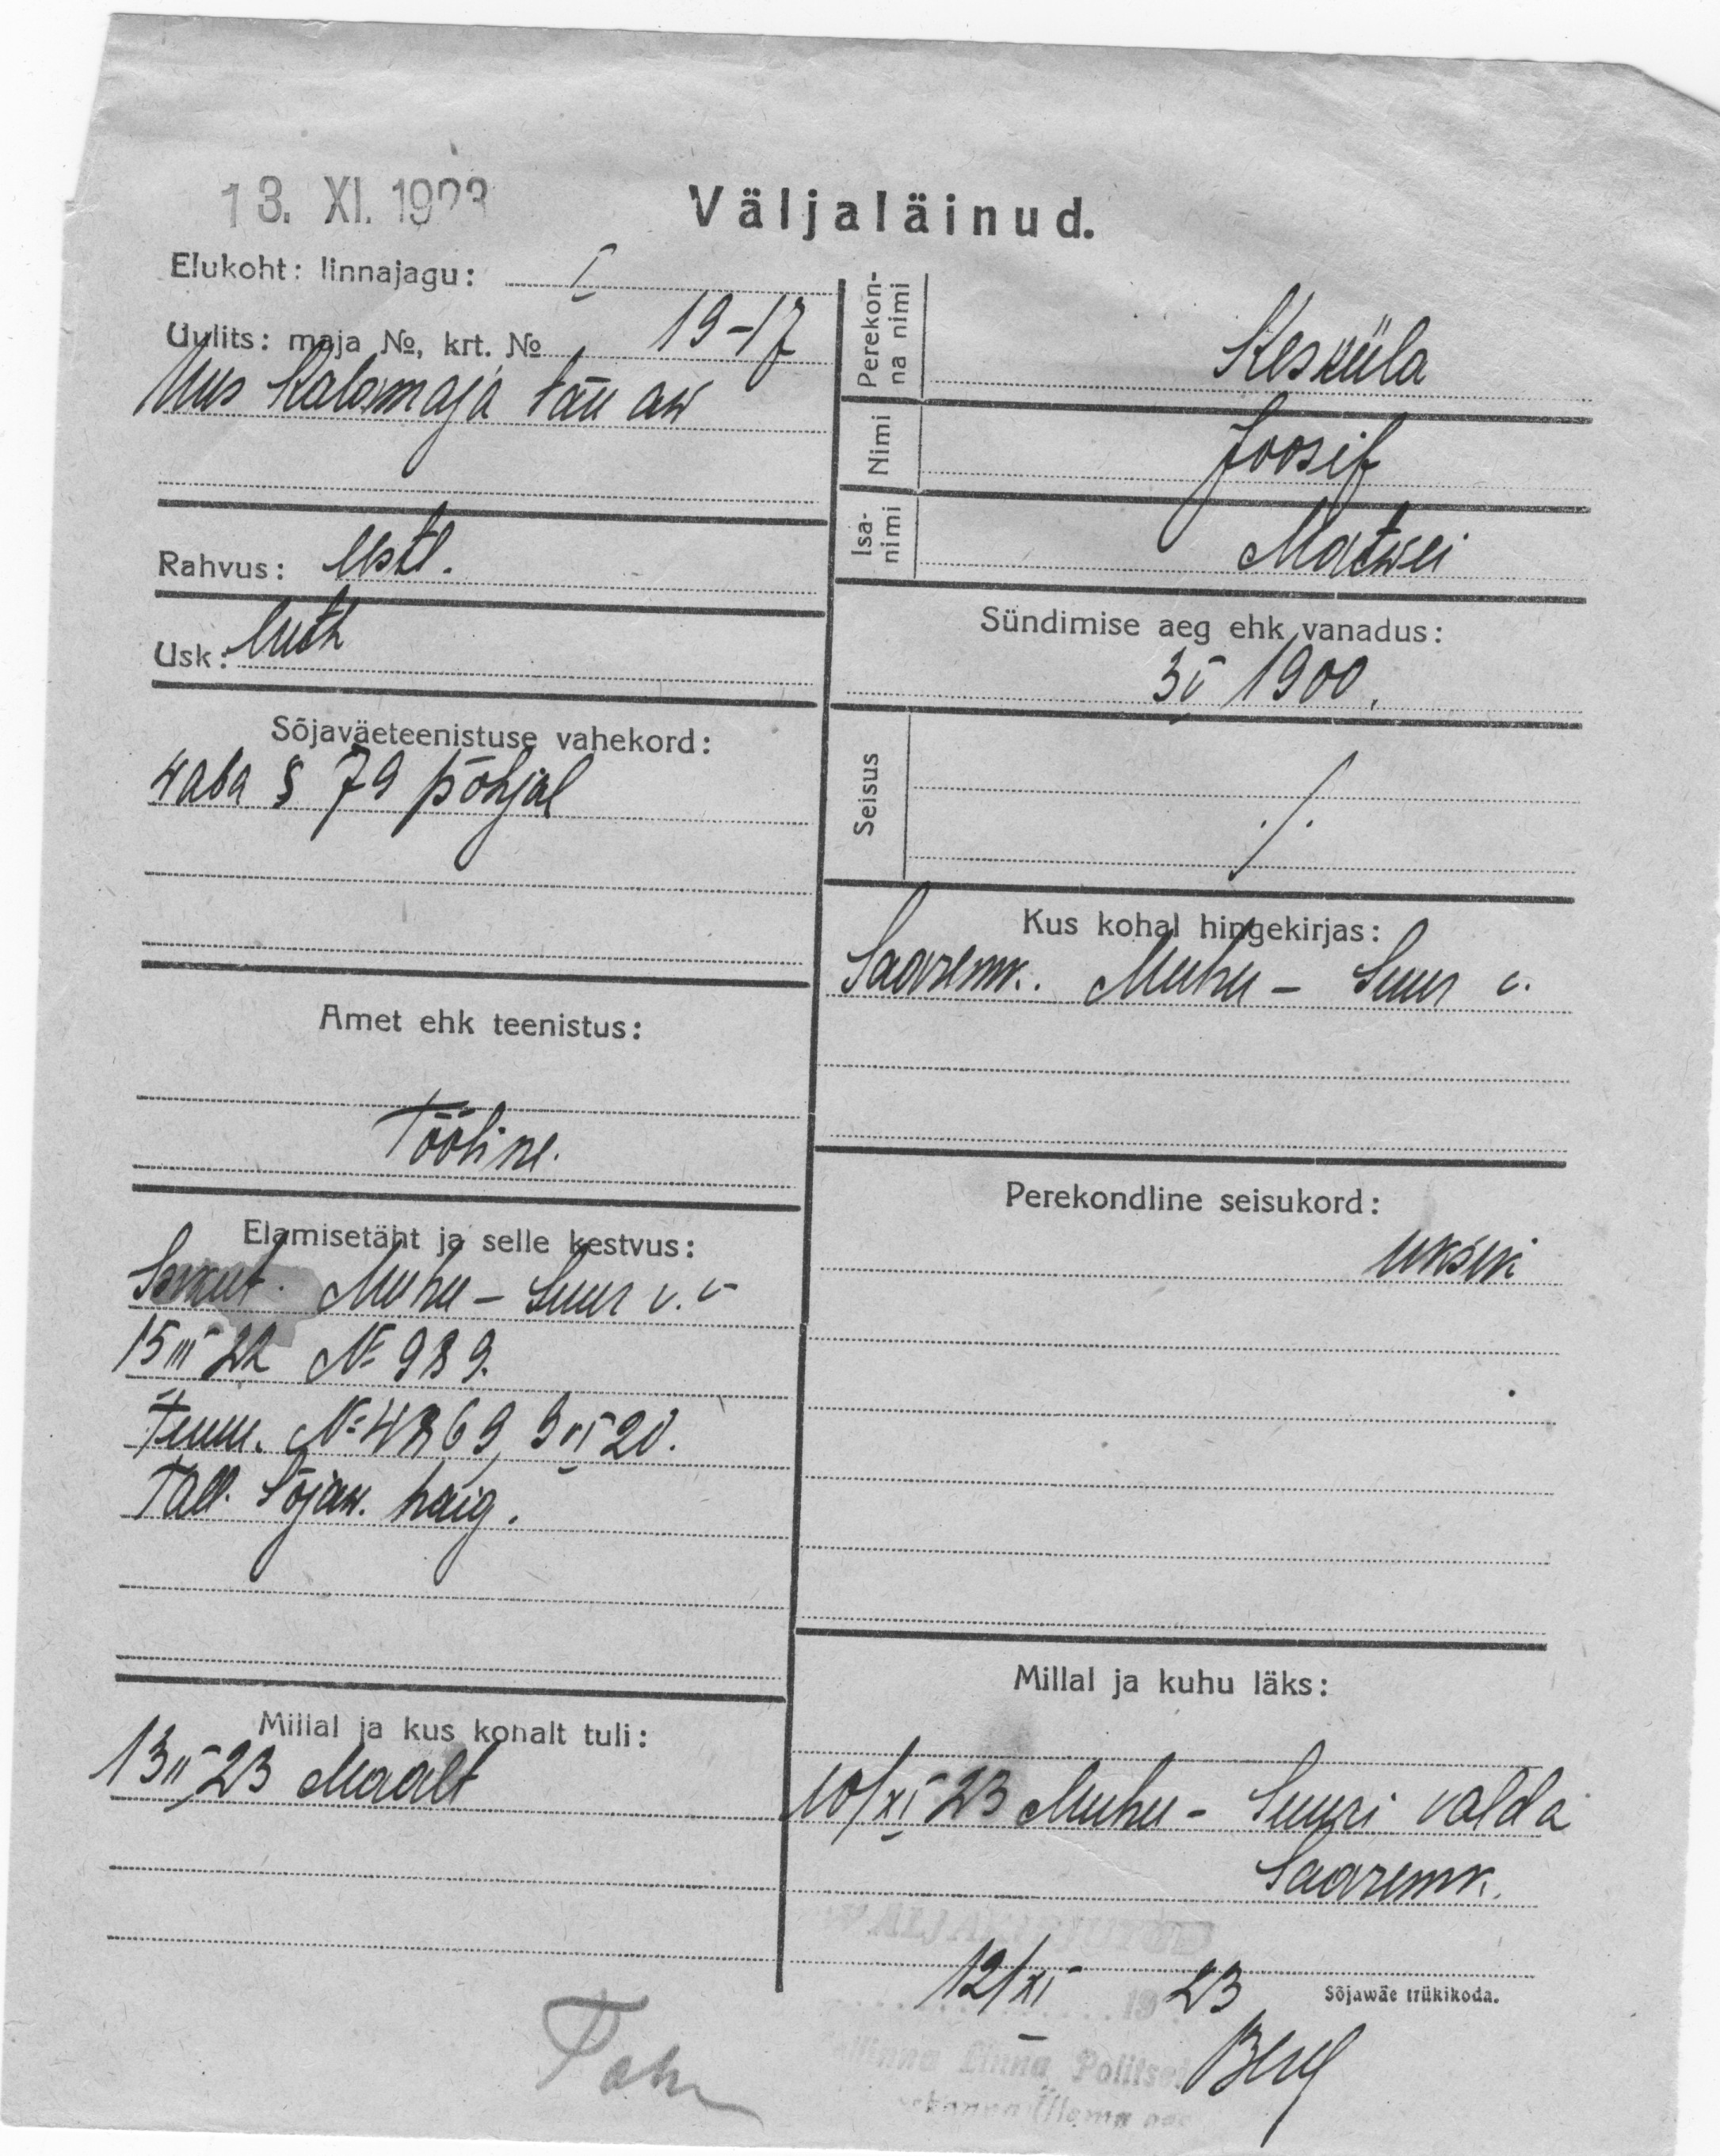 13. XI. 1923
Väljaläinud.
Elukoht: linnajagu: I
Uulits: maja №, krt. № 19-17
Uus Kalamaja tän aw
Rahvus: eestl.
Usk: luth
Sõjaväeteenistuse vahekord:
waba § 79 põhjal
Amet ehk teenistus:
Tööline.
Elamisetäht ja selle kestvus:
Isikut. Muhu - Suur v. v
15 III 22 № 989.
Tunn. № 4869, 9 VI 20.
Tall. Sõjaw. haig.
Millal ja kus kohalt tuli:
13 II 23 Maalt
Perekonna nimi
Kesküla
Nimi
Joosif
Isanimi
Matwei
Sündimise aeg ehk vanadus:
3 V 1900.
Seisus
./.
Kus kohal hingekirjas:
Saaremk. Muhu - Suur v.
Perekondline seisukord:
üksik
Millal ja kuhu läks:
10/XI 23 Muhu - Suuri valda
Saaremk.
WÄLJAKIRJUTUD
12/XI 1923
Sõjawäe trükikoda.
Tallinna Linna Politsei